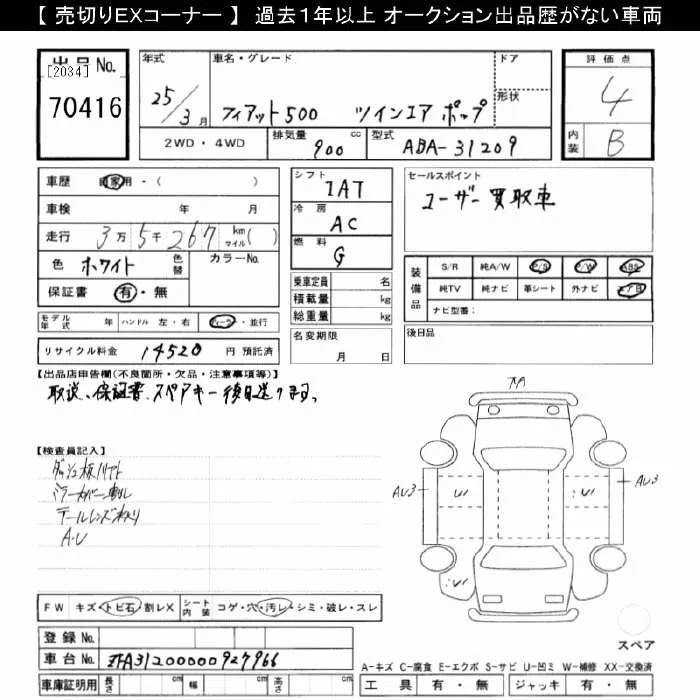 【 売切りEXコーナー 】 過去１年以上 オークション出品歴がない車両
出品No.
[2034]
70416
年式
25/3月
車名・グレード
フィアット500 ツインエア ポップ
ドア
形状
評価点
4
内装
B
2WD・4WD
排気量
900 cc
型式
ABA-31209
車歴 自家用・( )
車検 年 月
走行 3万5千267 km マイル( )
色 ホワイト 色替
カラーNo.
保証書 有・無
シフト
IAT
冷房
AC
燃料
G
セールスポイント
ユーザー買取車
乗車定員 名
積載量 kg
総重量 kg
装備品
S/R 純A/W P/S P/W ABS
純TV 純ナビ 革シート 外ナビ エアB
ナビ型番:
モデル年式 年 ハンドル 左・右 ディーラー・並行
リサイクル料金 14520 円 預託済
名変期限
月 日
後日品
【出品店申告欄(不良箇所・欠品・注意事項等)】
取説、保証書、スペアキー後日送ります。
【検査員記入】
ミラーカバー
テールレンズ
A・U
AU3
U
U
AU3
U
FW キズ・トビ石・割レX
シート内装 コゲ・穴・汚レ・シミ・破レ・スレ
スペア
登録No.
車台No. ZFA31200000927966
車庫証明用 長さ cm 幅 cm 高さ cm
A-キズ C-腐食 E-エクボ S-サビ U-凹ミ W-補修 XX-交換済
工具 有・無 ジャッキ 有・無